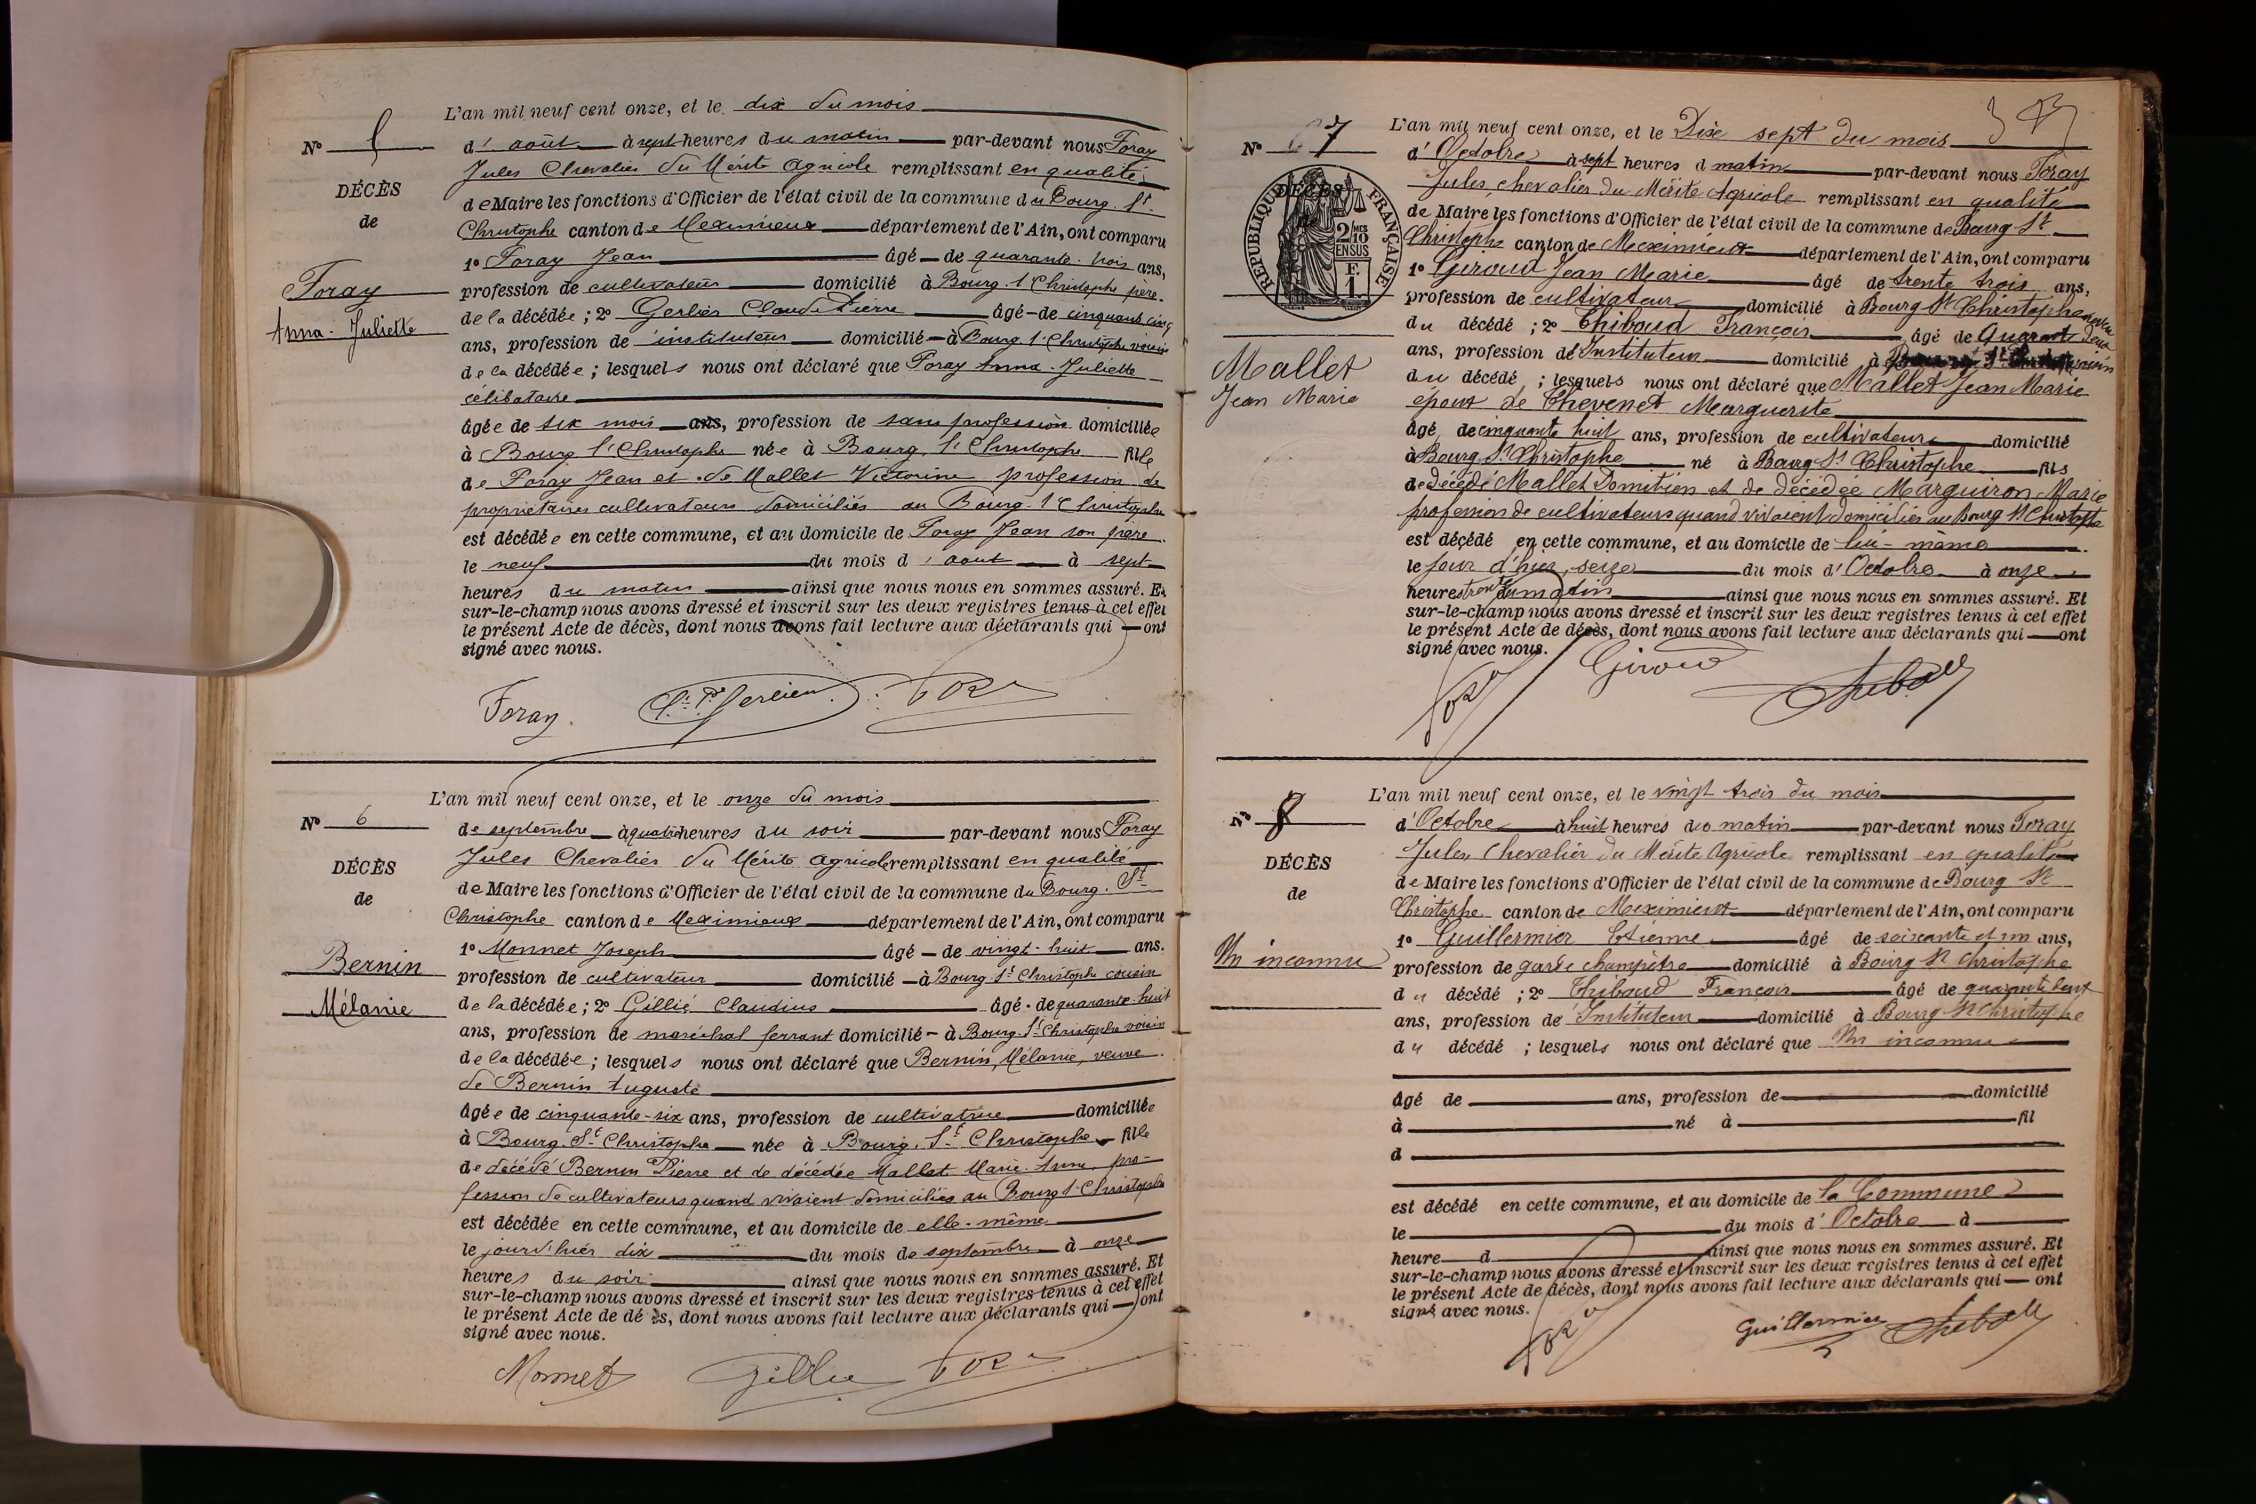 L'an mil neuf cent onze, et le dix du mois
N° 5
d'août à sept heures du matin par-devant nous Foray
Jules Chevalier du Mérite Agricole remplissant en qualité
DÉCÈS
de Maire les fonctions d'Officier de l'état civil de la commune du Bourg-St-
de
Christophe canton de Meximieux département de l'Ain, ont comparu
1° Foray Jean âgé de quarante-trois ans,
Foray
profession de cultivateur domicilié à Bourg-St Christophe père
Anna-Juliette
de la décédée ; 2° Gerlier Claude Pierre âgé de cinquante cinq
ans, profession de instituteur domicilié à Bourg-St Christophe voisin
de la décédée ; lesquels nous ont déclaré que Foray Anna-Juliette
célibataire
âgée de six mois ans, profession de sans profession domiciliée
à Bourg St Christophe née à Bourg St Christophe fille
de Foray Jean et de Mallet Victorine profession de
propriétaires cultivateurs domiciliés au Bourg-St Christophe
est décédée en cette commune, et au domicile de Foray Jean son père
le neuf du mois d'août à sept
heures du matin ainsi que nous nous en sommes assuré. Et
sur-le-champ nous avons dressé et inscrit sur les deux registres tenus à cet effet
le présent Acte de décès, dont nous avons fait lecture aux déclarants qui ont
signé avec nous.
Foray Cl. P. Gerlier Foray
L'an mil neuf cent onze, et le onze du mois
N° 6
de septembre à quatre heures du soir par-devant nous Foray
Jules Chevalier du Mérite Agricole remplissant en qualité
DÉCÈS
de Maire les fonctions d'Officier de l'état civil de la commune du Bourg-St-
de
Christophe canton de Meximieux département de l'Ain, ont comparu
1° Monnet Joseph âgé de vingt-huit ans.
Bernin
profession de cultivateur domicilié à Bourg-St Christophe cousin
Mélanie
de la décédée ; 2° Gillié Claudius âgé de quarante-huit
ans, profession de maréchal ferrant domicilié à Bourg-St Christophe voisin
de la décédée ; lesquels nous ont déclaré que Bernin, Mélanie, veuve
de Bernin Auguste
âgée de cinquante-six ans, profession de cultivatrice domiciliée
à Bourg-St Christophe née à Bourg-St Christophe fille
de décédé Bernin Pierre et de décédée Mallet Marie-Anne, pro-
fession de cultivateurs quand vivaient domiciliés au Bourg St Christophe
est décédée en cette commune, et au domicile de elle-même
le jour d'hier dix du mois de septembre à onze
heures du soir ainsi que nous nous en sommes assuré. Et
sur-le-champ nous avons dressé et inscrit sur les deux registres tenus à cet effet
le présent Acte de décès, dont nous avons fait lecture aux déclarants qui ont
signé avec nous.
Monnet Gillié Foray
L'an mil neuf cent onze, et le Dix sept du mois
N° 7
d'Octobre à sept heures d matin par-devant nous Foray
Jules, chevalier du Mérite Agricole remplissant en qualité
DÉCÈS
RÉPUBLIQUE FRANÇAISE
2/10 EN SUS
F. 1
de Maire les fonctions d'Officier de l'état civil de la commune de Bourg St
Christophe canton de Meximieux département de l'Ain, ont comparu
1° Giroud Jean Marie âgé de trente trois ans,
profession de cultivateur domicilié à Bourg St Christophe neveu
du décédé ; 2° Thiboud François âgé de Quarante deux
Mallet
Jean Marie
ans, profession de Instituteur domicilié à Bourg St Christophe voisin
du décédé ; lesquels nous ont déclaré que Mallet Jean Marie
époux de Thevenet Marguerite
âgé de cinquante huit ans, profession de cultivateur domicilié
à Bourg St Christophe né à Bourg St Christophe fils
de décédé Mallet Domitien et de décédée Marguiron Marie
profession de cultivateurs quand vivaient domiciliés au Bourg St Christophe
est décédé en cette commune, et au domicile de lui-même
le jour d'hier, seize du mois d'Octobre à onze
heures trente du matin ainsi que nous nous en sommes assuré. Et
sur-le-champ nous avons dressé et inscrit sur les deux registres tenus à cet effet
le présent Acte de décès, dont nous avons fait lecture aux déclarants qui ont
signé avec nous.
Foray Giroud Thiboud
L'an mil neuf cent onze, et le vingt trois du mois
N° 8
d'Octobre à huit heures du matin par-devant nous Foray
Jules Chevalier du Mérite Agricole remplissant en qualité
DÉCÈS
de Maire les fonctions d'Officier de l'état civil de la commune de Bourg St
de
Christophe canton de Meximieux département de l'Ain, ont comparu
1° Guillermier Etienne âgé de soixante et un ans,
Un inconnu
profession de garde champêtre domicilié à Bourg St Christophe
du décédé ; 2° Thiboud François âgé de quarante deux
ans, profession de Instituteur domicilié à Bourg St Christophe
du décédé ; lesquels nous ont déclaré que Un inconnu
âgé de ans, profession de domicilié
à né à fil
d
est décédé en cette commune, et au domicile de la Commune
le du mois d'Octobre à
heure d ainsi que nous nous en sommes assuré. Et
sur-le-champ nous avons dressé et inscrit sur les deux registres tenus à cet effet
le présent Acte de décès, dont nous avons fait lecture aux déclarants qui ont
signé avec nous.
Foray Guillermier Thiboud